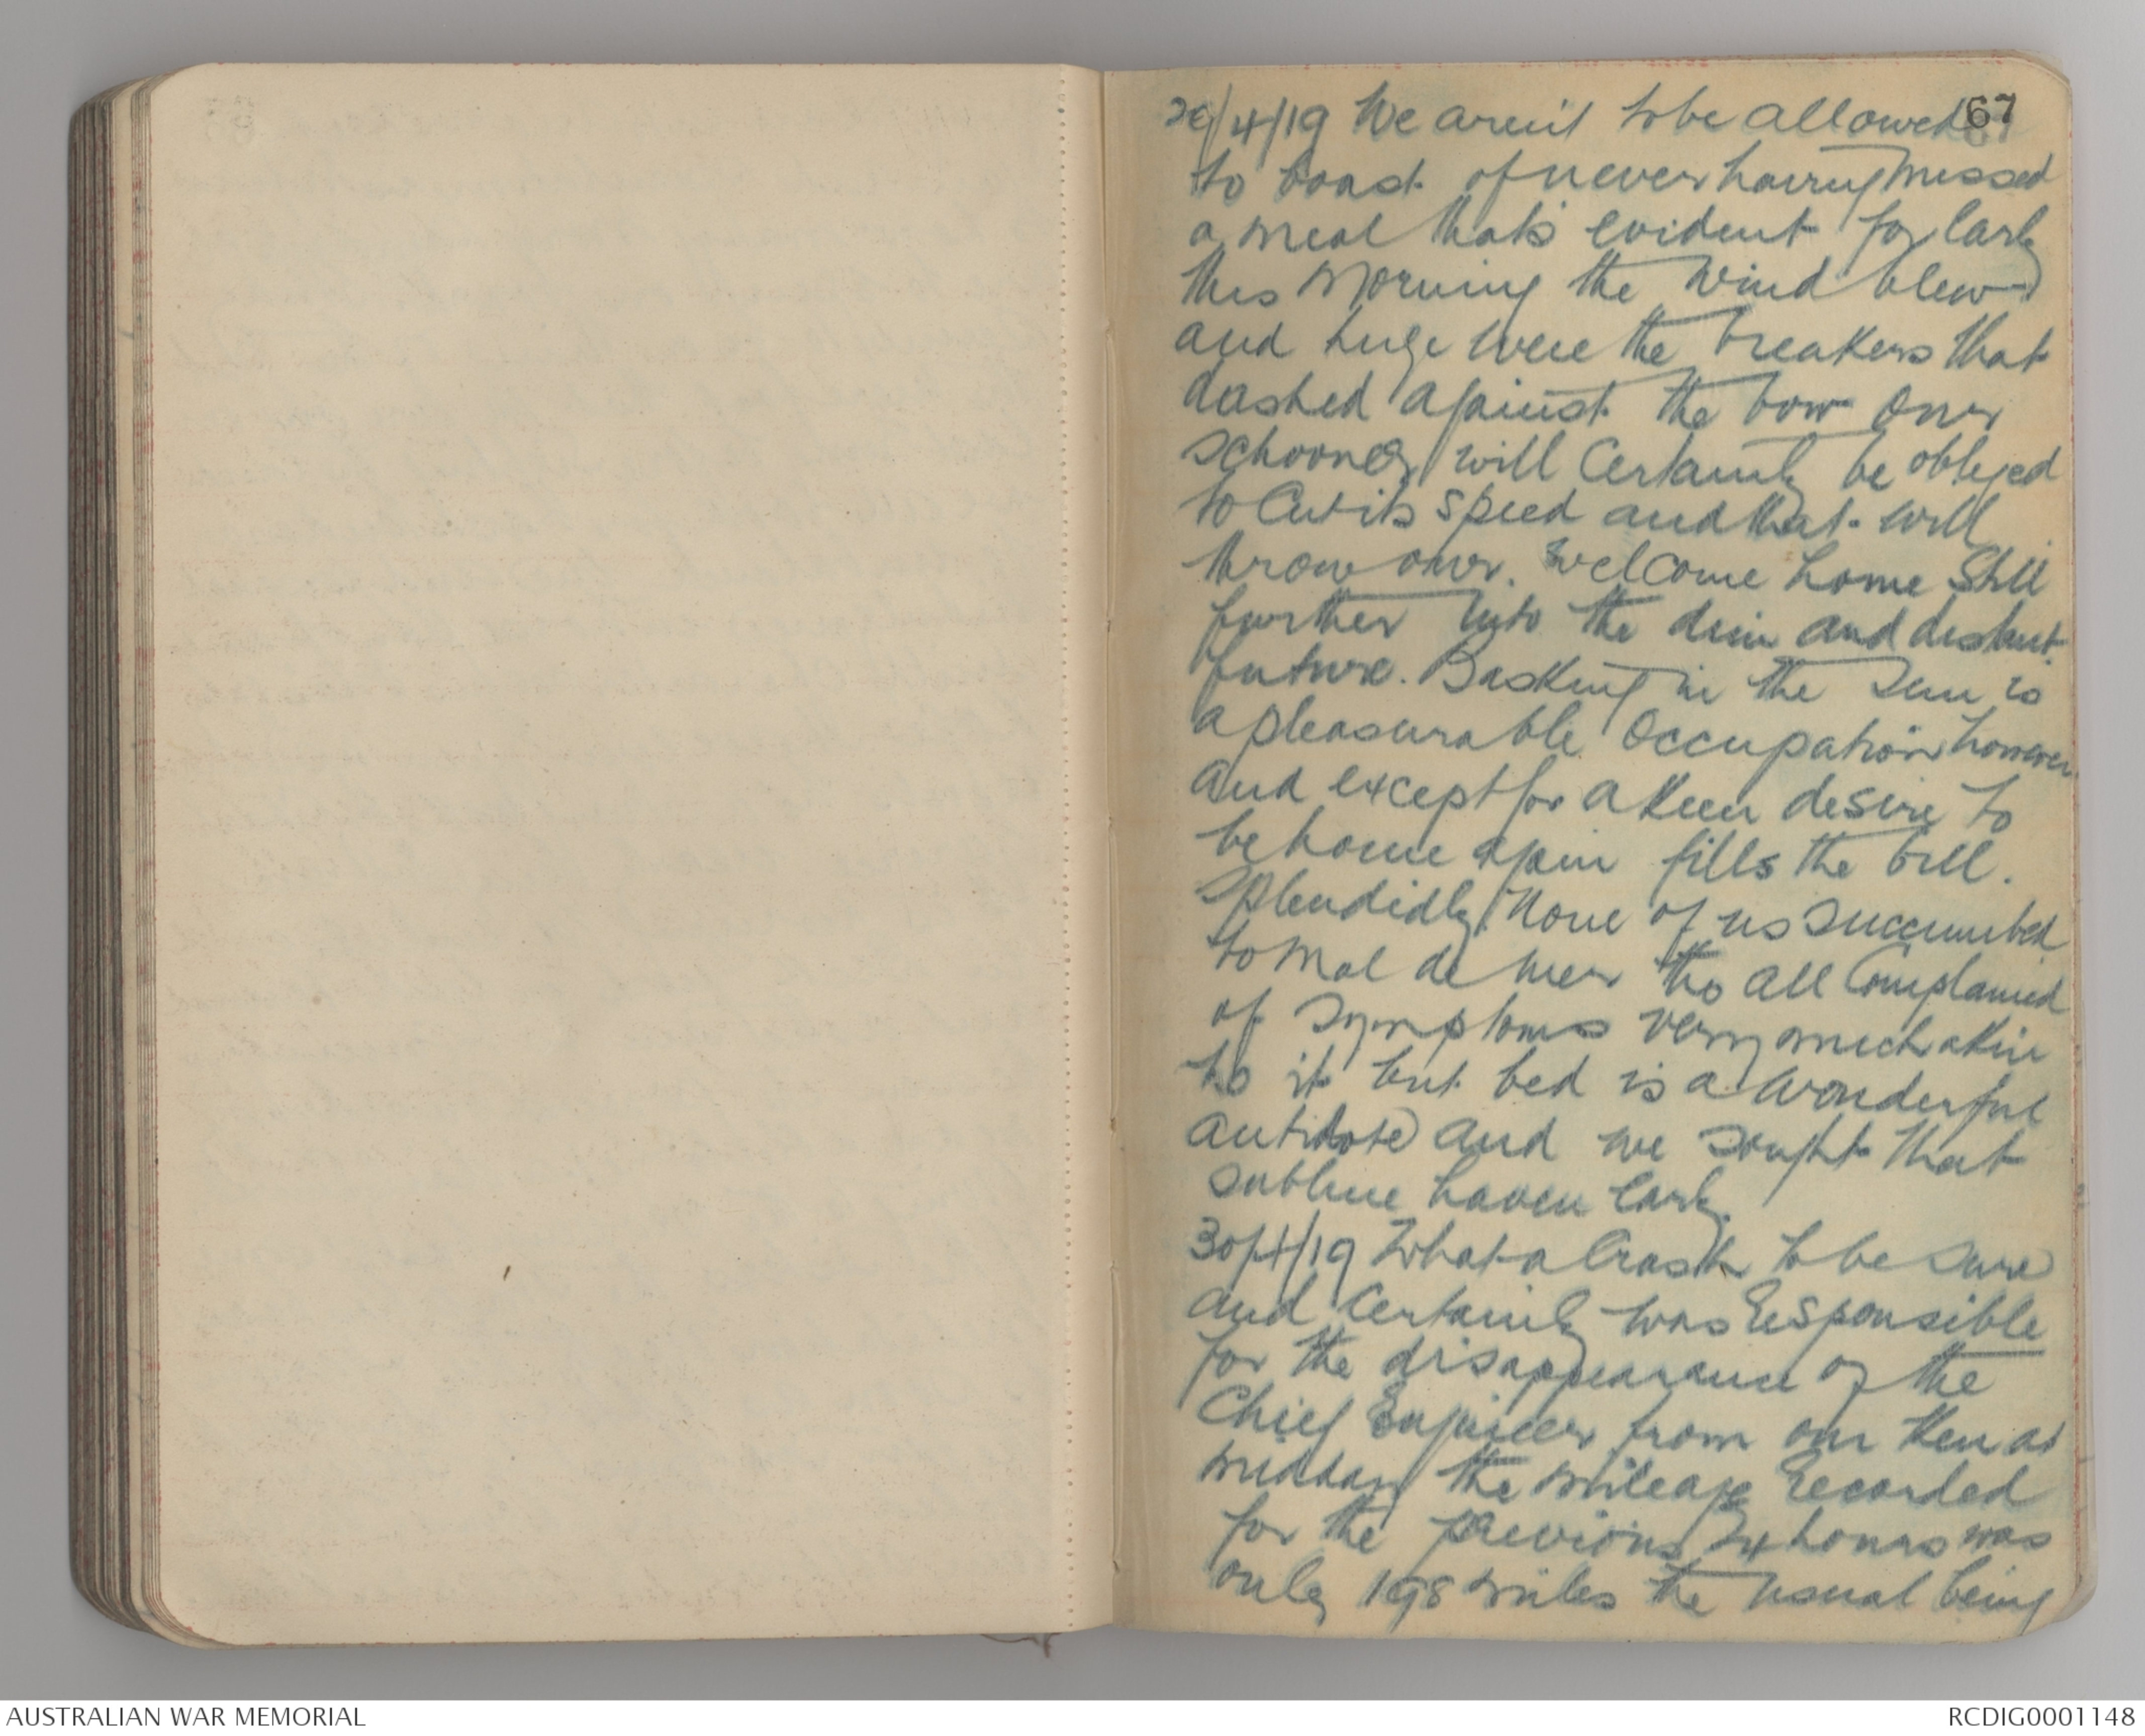 67
/4/19 We aren't to be allowed
to boast of never having missed
a meal that's evident for early
this morning the wind blew
and huge were the breakers that
dashed against the bow our
schooner will certainly be obliged
to cut its speed and that will
throw our welcome home still
further into the dim and distant
future. Basking in the sun is
a pleasurable occupation however
and except for a keen desire to
be home again fills the bill.
splendidly. None of us succumbed
to mal de mer tho all complained
of symptoms very much akin
to it but bed is a wonderful
antidote and we sought that
sublime haven early.
30/4/19 What a crash to be sure
and certainly was responsible
for the disappearance of the
Chief Engineer from our ken at
midday the mileage recorded
for the previous 24 hours was
only 198 miles the usual being
AUSTRALIAN WAR MEMORIAL
RCDIG0001148